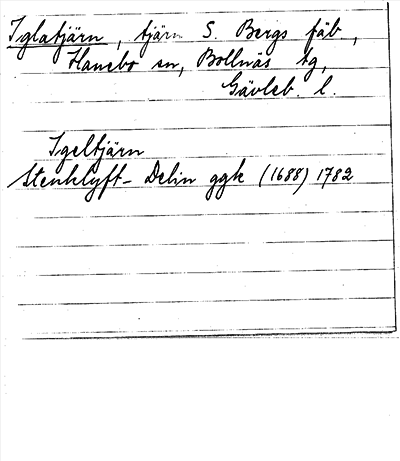 Iglatjärn, tjärn S. Bergs fäb.,
Hanebo sn, Bollnäs tg,
Gävleb. l.
Igeltjärn
Stenklyft- Delin ggk (1688) 1782